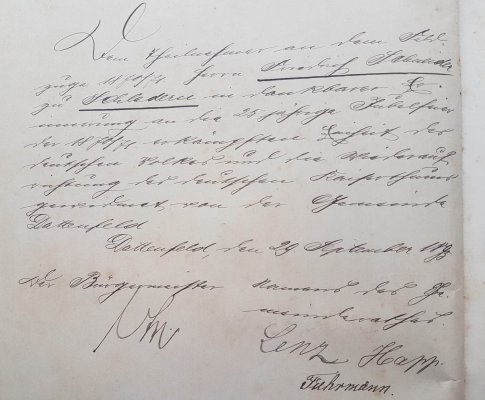 Dem Theilnehmer an dem Feld
zuge 1870/71 Herrn Friedrich Schneider
zu Schladern in dankbarer Er
innerung an die 25 jährige Jubelfeier
der 1870/71 erkämpften Einheit des
deutschen Volkes und die Wiederauf
richtung des deutschen Kaiserthums
gewidmet, von der Gemeinde
Dattenfeld
Dattenfeld, den 29 September 1895
Der Bürgermeister Namens des Ge
meinderathes.
Lenz Happ
Fuhrmann.